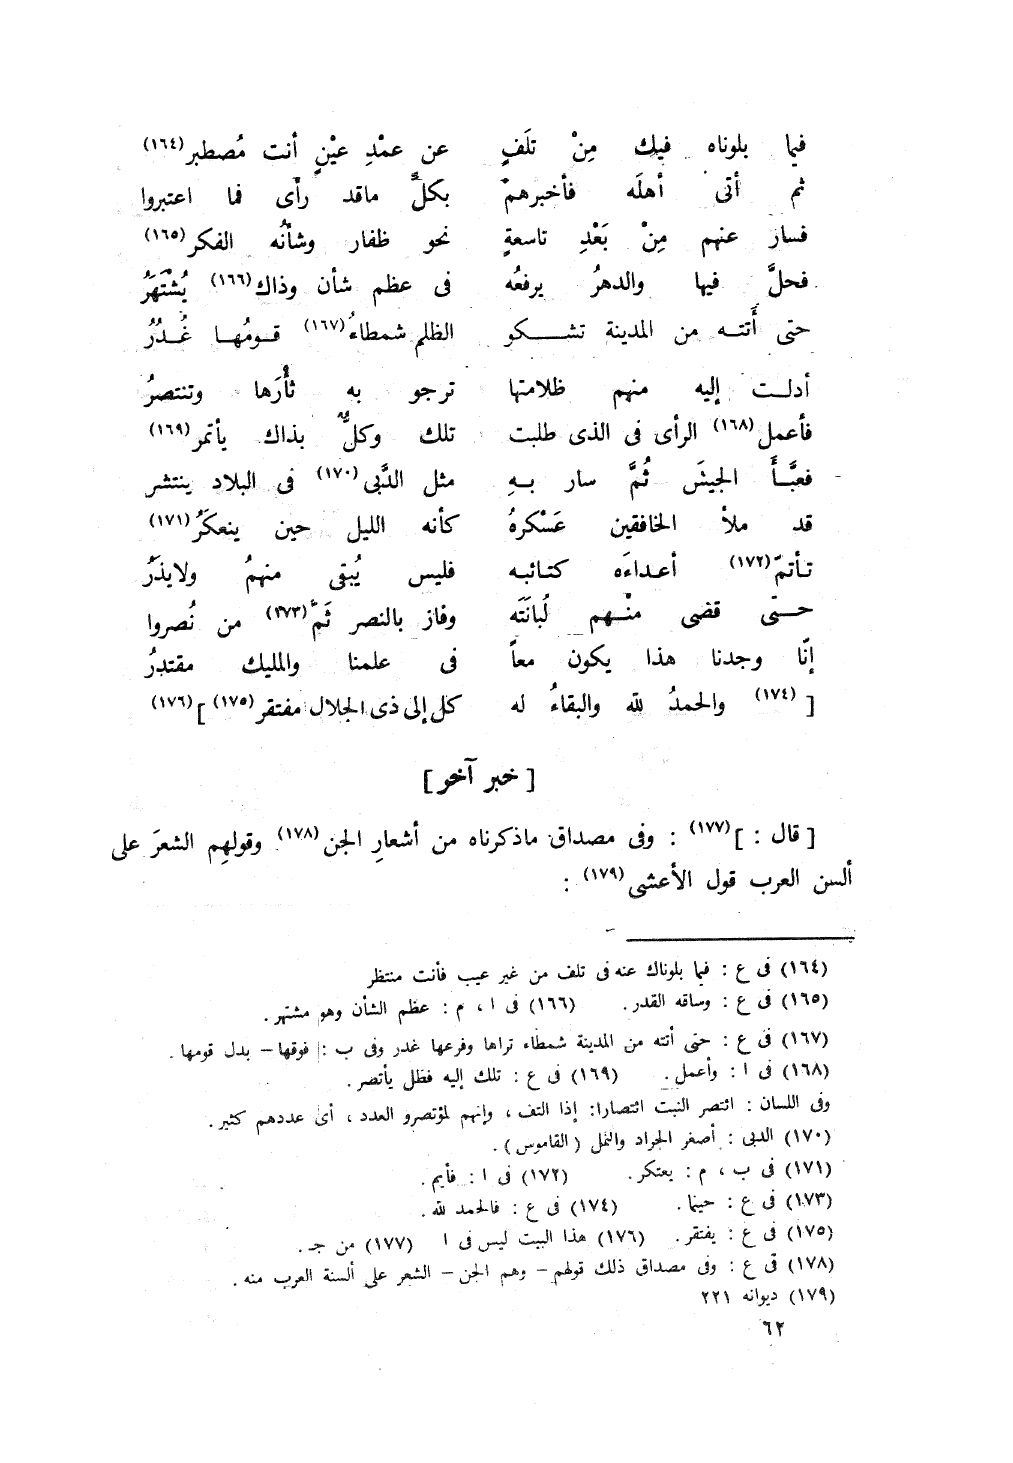 فيما بلوناه فيك مِنْ تلَفٍ عن عمْدِ عيْنٍ أنت مُصطبر(١٦٤)
ثم أتى أهلَه فأخبرهمْ بكلِّ ماقد رأى فما اعتبروا
فسار عنهم مِنْ بَعْدِ تاسعةٍ نحو ظفار وشأنُه الفكر(١٦٥)
فحلَّ فيها والدهرُ يرفعُه فى عظم شأن وذاك(١٦٦) يُشْتَهَرُ
حتى أَتته من المدينة تشكو الظلم شمطاءُ(١٦٧) قومُها غُدُرُ
أدلت إليه منهم ظلامتها ترجو به ثأْرَها وتنتصرُ
فأعمل(١٦٨) الرأى فى الذى طلبت تلك وكلٌّ بذاك يأتمر(١٦٩)
فعبَّأَ الجيشَ ثُمَّ سار بهِ مثل الدَّبى(١٧٠) فى البلاد ينتشر
قد ملأ الخافقين عَسْكرهُ كأنه الليل حين ينعكَرُ(١٧١)
تأتمّ(١٧٢) أعداءَه كتائبه فليس يُبقى منهمُ ولايذَرُ
حتى قضى منْهم لُبانَتَه وفاز بالنصر ثَمَّ(١٧٣) من نُصروا
إنّا وجدنا هذا يكون معاً فى علمنا والمليك مقتدرُ
[(١٧٤) والحمدُ لله والبقاءُ له كل إلى ذى الجلال مفتقر(١٧٥)](١٧٦)
[ خبر آخر ]
[ قال : ](١٧٧) : وفى مصداق ماذكرناه من أشعارِ الجن(١٧٨) وقولهِم الشعرَ على
ألسن العرب قول الأعشى(١٧٩) :
(١٦٤) فى ع : فيما بلوناك عنه فى تلف من غير عيب فأنت منتظر
(١٦٥) فى ع : وساقه القدر. (١٦٦) فى ا ، م : عظم الشأن وهو مشتهر.
(١٦٧) فى ع : حتى أتته من المدينة شمطاء تراها وفرعها غدر وفى ب : فوقها - بدل قومها.
(١٦٨) فى ا : وأعمل. (١٦٩) فى ع : تلك إليه فظل يأتصر.
وفى اللسان : ائتصر النبت ائتصارا: إذا التف ، وإنهم لمؤتصرو العدد ، أى عددهم كثير.
(١٧٠) الدبى : أصغر الجراد والنمل (القاموس).
(١٧١) فى ب ، م : يعتكر. (١٧٢) فى ا : فأيم.
(١٧٣) فى ع : حينما. (١٧٤) فى ع : فالحمد لله.
(١٧٥) فى ع : يفتقر. (١٧٦) هذا البيت ليس فى ا (١٧٧) من جـ.
(١٧٨) فى ع : وفى مصداق ذلك قولهم - وهم الجن - الشعر على ألسنة العرب منه.
(١٧٩) ديوانه ٢٢١
٦٢